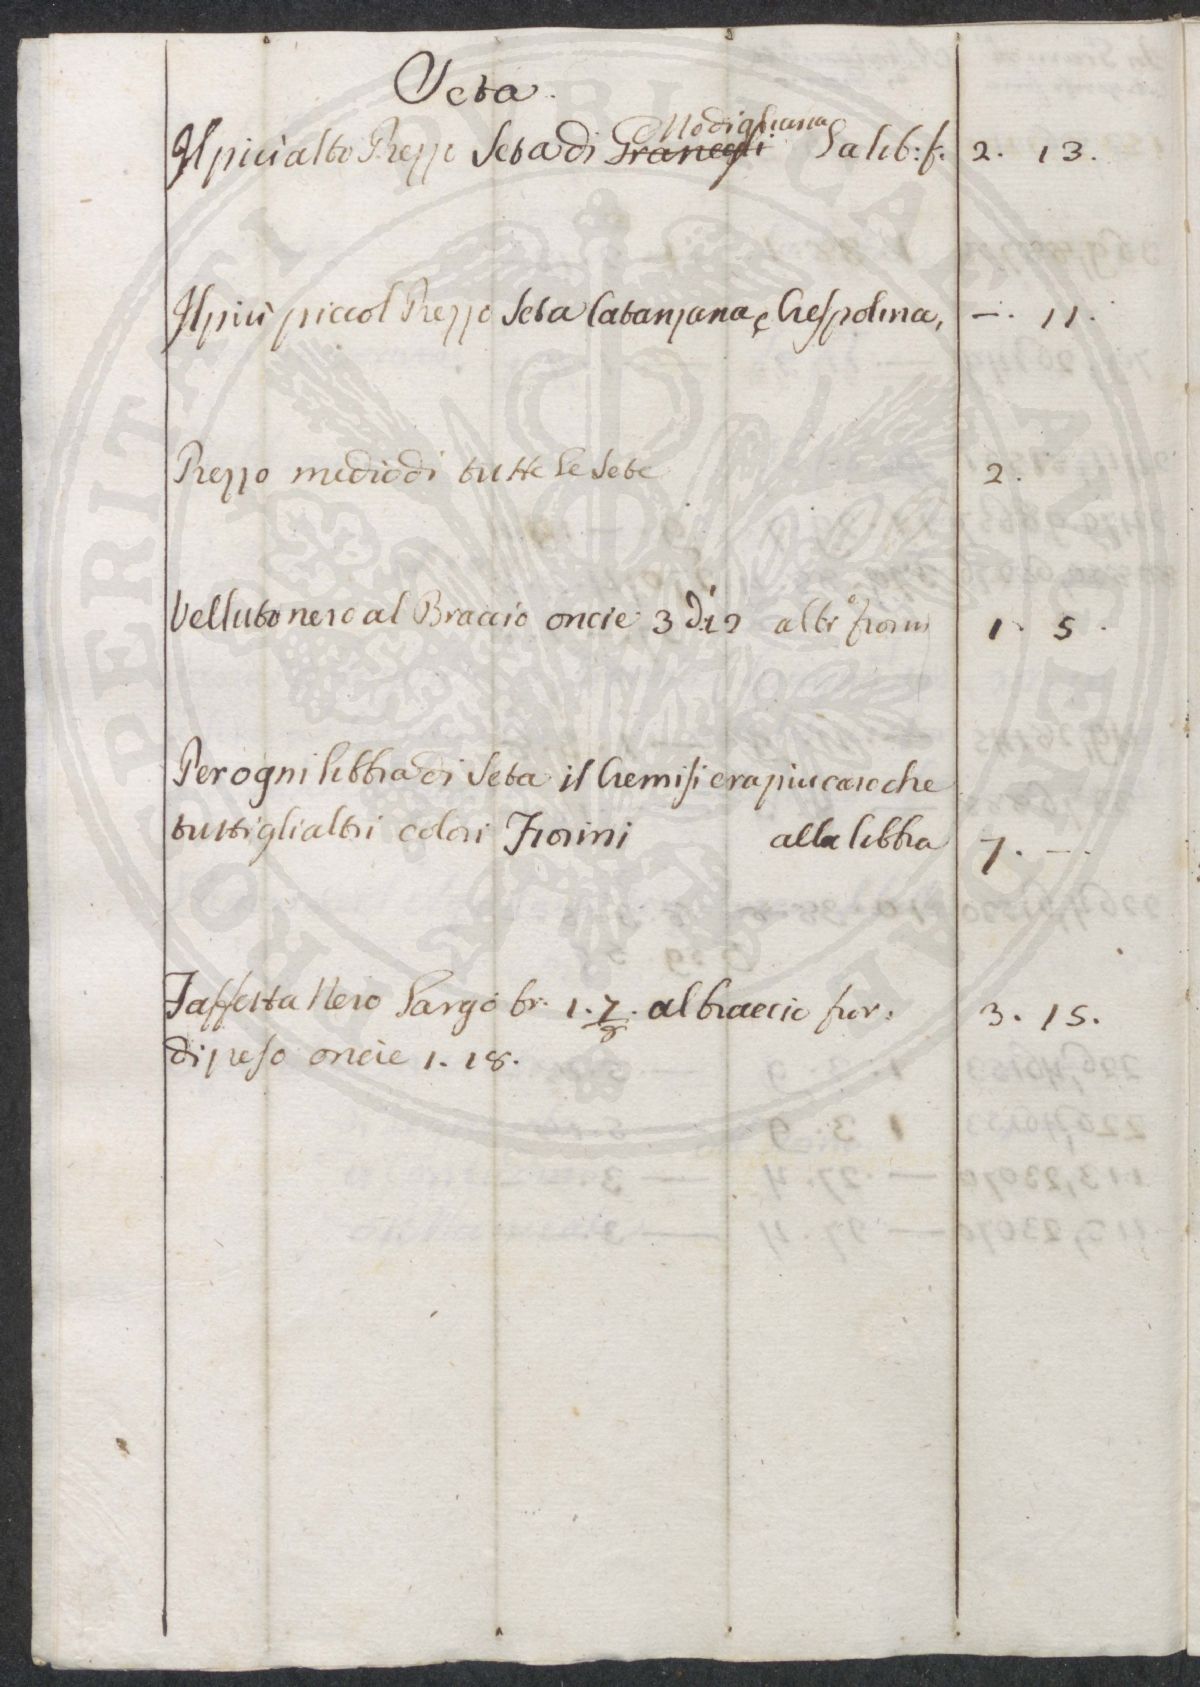 Seta.
Modigliana
Il piu alto Prezzo Seta di Franegli La lib: f. 2. 13.
Il piu piccol Prezzo Seta Catanzana, e Crespolina, —. 11.
Prezzo medio di tutte le Sete 2.
Velluto nero al Braccio oncie 3 altr° fiorini 1. 5.
Per ogni libbra di Seta il Cremisi era piu caro che
tutti gli altri colori Fiorini alla libbra 7. —.
Taffetta Nero Largo br. 1. 7/8. al braccio fior: 3. 15.
di peso oncie 1. 18.